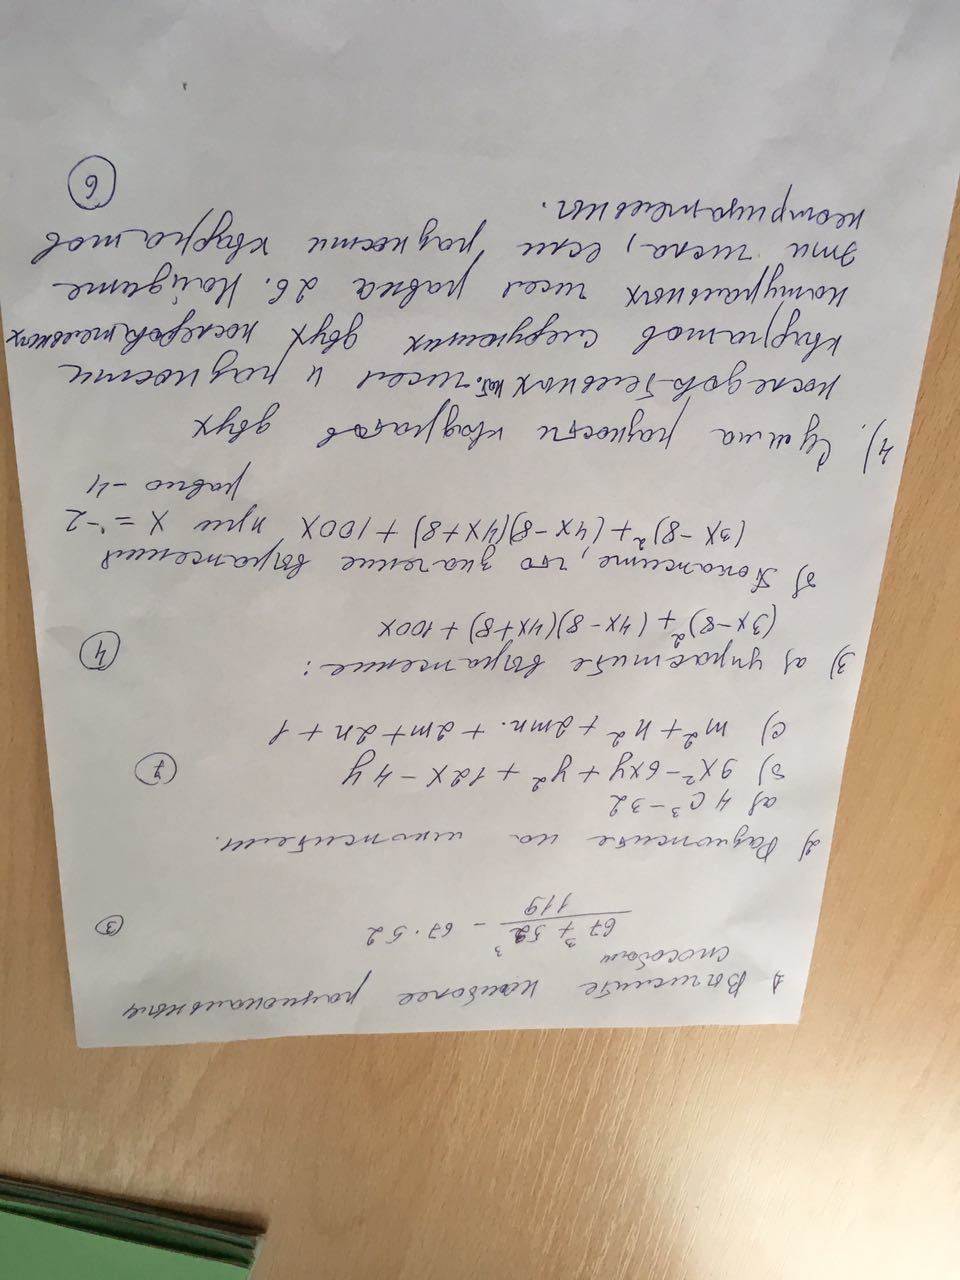 1. Вычислите наиболее рациональным
способом
67³ + 52³ / 119 - 67·52 (3)
2) Разложите на множители.
а) 4c³ - 32
б) 9x² - 6xy + y² + 12x - 4y (7)
с) m² + n² + 2mn. + 2m + 2n + 1
3) а) упростите выражение: (4)
(3x-8)² + (4x-8)(4x+8) + 100x
б) Покажите, что значение выражения
(3x-8)² + (4x-8)(4x+8) + 100x при x = -2
равно -4
4). Сумма разности квадратов двух
последовательных нат. чисел и разности
квадратов следующих двух последовательных
натуральных чисел равна 26. Найдите
эти числа, если разности квадратов
неотрицательны. (6)